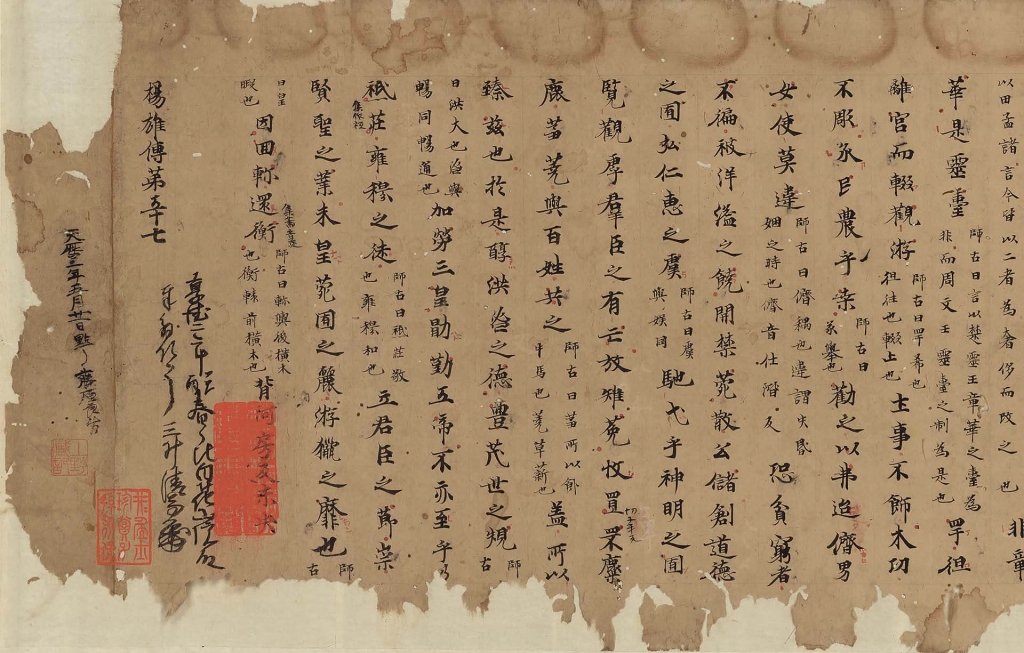 以田孟諸言今皆以二者為奢侈而改之也
非章
華是靈臺
師古曰言以楚靈王章華之臺為
非而周文王靈臺之制為是也
罕徂
離宮而輟觀游
師古曰罕希也
徂往也輟止也
土事不飾木功
不彫丞民農乎桒
師古曰
勸之以弗迨儕男
女使莫違
師古曰儕耦也違謂失昬
姻之時也儕音仕階反
恐貧窮者
不徧被洋溢之饒開禁菀散公儲創道德
之囿弘仁惠之虞
師古曰虞
與娛同
馳弋乎神明之囿
覽觀虖羣臣之有亡放雉菟收罝罘麋
鹿蒭蕘與百姓共之
師古曰蒭所以飤
牛馬也蕘草薪也
蓋所以
臻兹也於是醇洪鬯之德豊茂世之規
師
古
曰洪大也鬯與
暢同暢通也
加勞三皇勖勤五帝不亦至乎乃
祗莊雍穆之徒
師古曰祗莊敬
也雍穆和也
立君臣之節崇
賢聖之業未皇菀囿之麗游獵之靡也
師
古
曰皇
暇也
因回軫還衡
師古曰軫輿後橫木
也衡轅前橫木也
背阿房反未央
楊雄傳第五十七
天暦二年五月廿一日點了